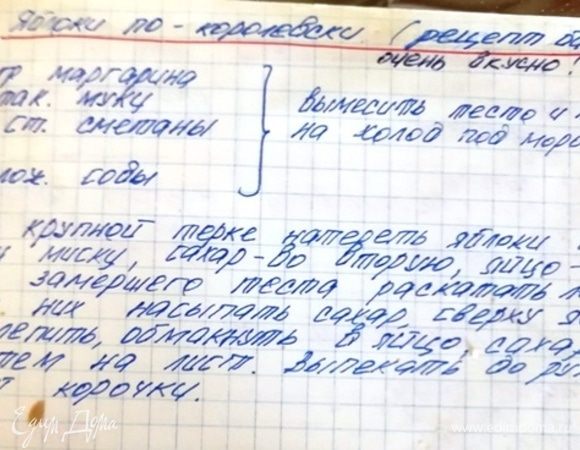 Яблоки по-королевски. (рецепт ба
очень вкусно!
гр маргарина
так. муки
ст. сметаны
лож. соды
вымесить тесто и
на холод под моро
крупной терке натереть яблоки
миску, сахар-во вторую, яйцо-
замерзшего теста раскатать л
них насыпать сахар, сверху я
лепить, обмакнуть в яйцо, саха
тем на лист. Выпекать до ру
корочки.
Едим Дома
www.edimdoma.ru